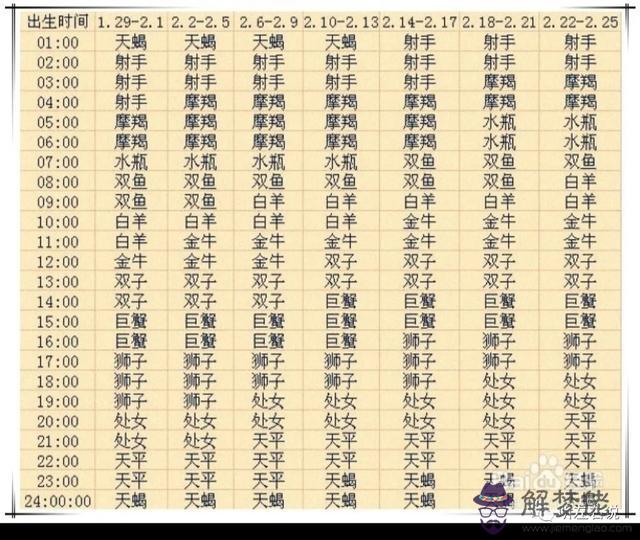 出生时间 1.29-2.1 2.2-2.5 2.6-2.9 2.10-2.13 2.14-2.17 2.18-2.21 2.22-2.25
01:00 天蝎 天蝎 天蝎 天蝎 射手 射手 射手
02:00 射手 射手 射手 射手 射手 射手 射手
03:00 射手 射手 射手 射手 射手 摩羯 摩羯
04:00 射手 摩羯 摩羯 摩羯 摩羯 摩羯 摩羯
05:00 摩羯 摩羯 摩羯 摩羯 摩羯 水瓶 水瓶
06:00 摩羯 摩羯 摩羯 摩羯 摩羯 水瓶 水瓶
07:00 水瓶 水瓶 水瓶 水瓶 双鱼 双鱼 双鱼
08:00 双鱼 双鱼 双鱼 双鱼 双鱼 双鱼 白羊
09:00 双鱼 双鱼 白羊 白羊 白羊 白羊 白羊
10:00 白羊 白羊 白羊 白羊 金牛 金牛 金牛
11:00 白羊 金牛 金牛 金牛 金牛 金牛 金牛
12:00 金牛 金牛 金牛 双子 双子 双子 双子
13:00 双子 双子 双子 双子 双子 双子 双子
14:00 双子 双子 双子 巨蟹 巨蟹 巨蟹 巨蟹
15:00 巨蟹 巨蟹 巨蟹 巨蟹 巨蟹 巨蟹 巨蟹
16:00 巨蟹 巨蟹 巨蟹 巨蟹 狮子 狮子 狮子
17:00 狮子 狮子 狮子 狮子 狮子 狮子 狮子
18:00 狮子 狮子 狮子 狮子 狮子 处女 处女
19:00 狮子 狮子 处女 处女 处女 处女 处女
20:00 处女 处女 处女 处女 处女 处女 天平
21:00 处女 处女 天平 天平 天平 天平 天平
22:00 天平 天平 天平 天平 天平 天平
23:00 天平 天平 天平 天蝎 天蝎 天蝎 天蝎
24:00:00 天蝎 天蝎 天蝎 天蝎 天蝎
解梦佬
www.jiemenglao.com